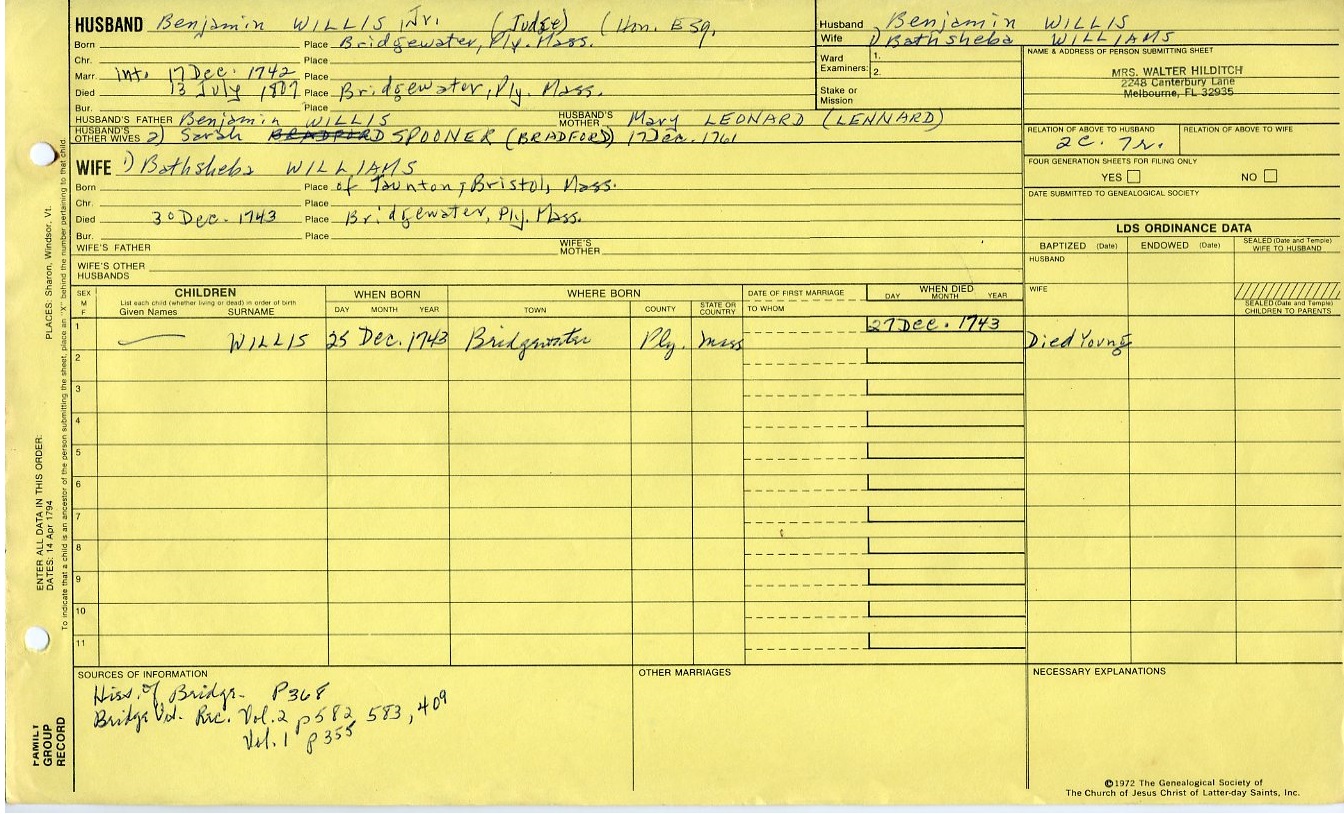 HUSBAND Benjamin WILLIS, Jr. (Judge) (Hon. Esq.
Born Place Bridgewater, Ply. Mass.
Chr. Place
Marr. int. 17 Dec. 1742 Place
Died 13 July 1807 Place Bridgewater, Ply. Mass.
Bur. Place
HUSBAND'S FATHER Benjamin WILLIS HUSBAND'S MOTHER Mary LEONARD (LENNARD)
HUSBAND'S OTHER WIVES 2) Sarah BRADFORD SPOONER (BRADFORD) 17 Dec. 1761
Husband Benjamin WILLIS
Wife 1) Bathsheba WILLIAMS
Ward Examiners: 1.
2.
Stake or Mission
NAME & ADDRESS OF PERSON SUBMITTING SHEET
MRS. WALTER HILDITCH
2248 Canterbury Lane
Melbourne, FL 32935
RELATION OF ABOVE TO HUSBAND RELATION OF ABOVE TO WIFE
2c. 7r.
FOUR GENERATION SHEETS FOR FILING ONLY
YES NO
DATE SUBMITTED TO GENEALOGICAL SOCIETY
WIFE 1) Bathsheba WILLIAMS
Born Place of Taunton, Bristol, Mass.
Chr. Place
Died 30 Dec. 1743 Place Bridgewater, Ply. Mass.
Bur. Place
WIFE'S FATHER WIFE'S MOTHER
WIFE'S OTHER HUSBANDS
LDS ORDINANCE DATA
BAPTIZED (Date) ENDOWED (Date) SEALED (Date and Temple) WIFE TO HUSBAND
HUSBAND
WIFE
SEALED (Date and Temple) CHILDREN TO PARENTS
SEX M F CHILDREN WHEN BORN WHERE BORN DATE OF FIRST MARRIAGE WHEN DIED
List each child (whether living or dead) in order of birth
Given Names SURNAME DAY MONTH YEAR TOWN COUNTY STATE OR COUNTRY TO WHOM DAY MONTH YEAR
1 WILLIS 25 Dec. 1743 Bridgewater Ply. Mass 27 Dec. 1743 Died Young
2
3
4
5
6
7
8
9
10
11
SOURCES OF INFORMATION
Hist. of Bridge. P368
Bridge Vit. Rec. Vol. 2 p582, 583, 409
Vol. 1 p355
OTHER MARRIAGES
NECESSARY EXPLANATIONS
©1972 The Genealogical Society of
The Church of Jesus Christ of Latter-day Saints, Inc.
PLACES: Sharon, Windsor, Vt.
ENTER ALL DATA IN THIS ORDER:
DATES: 14 Apr 1794
To indicate that a child is an ancestor of the person submitting the sheet, place an "X" behind the number pertaining to that child.
FAMILY GROUP RECORD